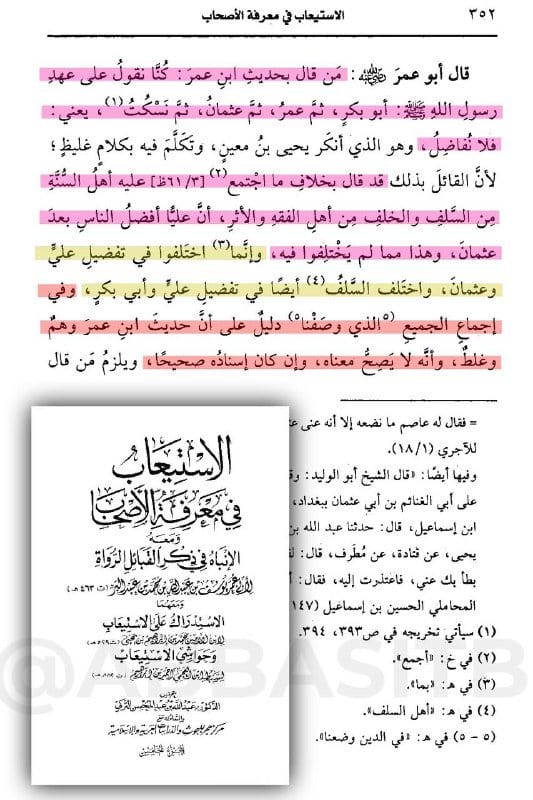 ٣٥٢ الاستيعاب في معرفة الأصحاب
قال أبو عمرَ ﷺ: مَن قال بحديثِ ابنِ عمرَ: كُنَّا نقولُ على عهدِ
رسولِ اللهِ ﷺ: أبو بكرٍ، ثمَّ عمرُ، ثمَّ عثمانُ، ثمَّ نَسْكُتُ(١)، يعني:
فلا نُفاضِلُ، وهو الذي أنكَر يحيى بنُ معينٍ، وتكلَّمَ فيه بكلامٍ غليظٍ؛
لأنَّ القائلَ بذلك قد قال بخلافِ ما اجْتمع(٢) [٦١/٣ظ] عليه أهلُ السُّنَّةِ
مِن السَّلفِ والخلفِ مِن أهلِ الفقهِ والأثرِ، أنَّ عليًّا أفضلُ الناسِ بعدَ
عثمانَ، وهذا مما لم يَخْتلِفوا فيه، وإنَّما(٣) اختَلفوا في تفضيلِ عليٍّ
وعثمانَ، واختَلف السَّلفُ(٤) أيضًا في تفضيلِ عليٍّ وأبي بكرٍ، وفي
إجماعِ الجميعِ (٥الذي وصَفْنا٥) دليلٌ على أنَّ حديثَ ابنِ عمرَ وهمٌ
وغلطٌ، وأنَّه لا يَصِحُّ معناه، وإن كان إسنادُه صحيحًا، ويلزمُ مَن قال
= فقال له عاصم ما نضعه إلا أنه عنى
للآجري (١٨/١).
وفيها أيضًا: «قال الشيخ أبو الوليد:
على أبي الغنائم بن أبي عثمان ببغداد،
ابن إسماعيل، قال: حدثنا عبد الله بن
يحيى، عن قتادة، عن مُطرف، قال:
بطأ بك عني، فاعتذرت إليه، فقال:
المحاملي الحسين بن إسماعيل (١٤٧
(١) سيأتي تخريجه في ص٣٩٣، ٣٩٤.
(٢) في خ: «أجمع».
(٣) في هـ: «بما».
(٤) في هـ: «أهل السلف».
(٥ - ٥) في هـ: «في الدين وضعنا».
الاستيعاب
في معرفة الأصحاب
ومعه
الإنباه في ذكر القبائل الرواة
لأبي عمر يوسف بن عبد الله بن محمد بن عبد البر (ت ٤٦٣ هـ)
ومعهما
الاستدراك على الاستيعاب
وحواشي الاستيعاب
تحقيق
الدكتور عبد الله بن عبد المحسن التركي
بالتعاون مع
مركز هجر للبحوث والدراسات العربية والإسلامية